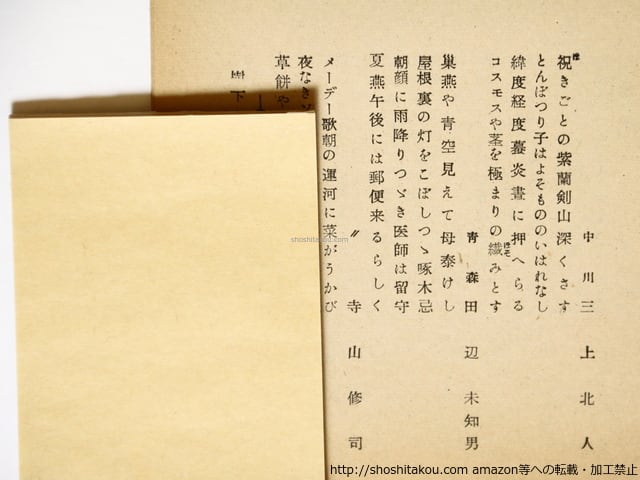 中川三上北人
祝きごとの紫蘭剣山深くさす
とんぼつり子はよそもののいはれなし
緯度経度蟇炎昼に押へらる
コスモスや茎を極まりの繊みとす
青森田辺未知男
巣燕や青空見えて母泰けし
屋根裏の灯をこぼしつゝ啄木忌
朝顔に雨降りつゞき医師は留守
夏燕午後には郵便来るらしく
〃寺山修司
メーデー歌朝の運河に菜がうかび
夜なき
草餅や
下
shoshitakou.com
http://shoshitakou.com amazon等への転載・加工禁止